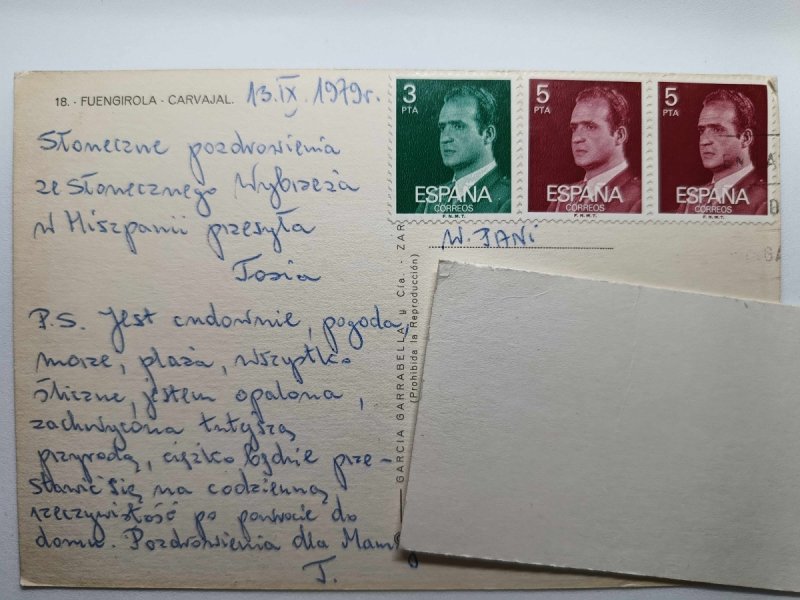 18. - FUENGIROLA - CARVAJAL.
13.IX.1979r.
Słoneczne pozdrowienia
ze Słonecznego Wybrzeża
w Hiszpanii przesyła
Tosia
P.S. Jest cudownie, pogoda,
morze, plaża, wszystko
śliczne, jestem opalona,
zachwycona tutejszą
przyrodą, ciężko będzie prze-
stawić się na codzienną
rzeczywistość po powrocie do
domu. Pozdrowienia dla Mamy
T.
3 PTA
ESPAÑA
CORREOS
F.N.M.T.
5 PTA
ESPAÑA
CORREOS
F.N.M.T.
5 PTA
ESPAÑA
CORREOS
F.N.M.T.
W. PANI
GARCIA GARRABELLA y Cía. - ZAR
(Prohibida la Reproducción)